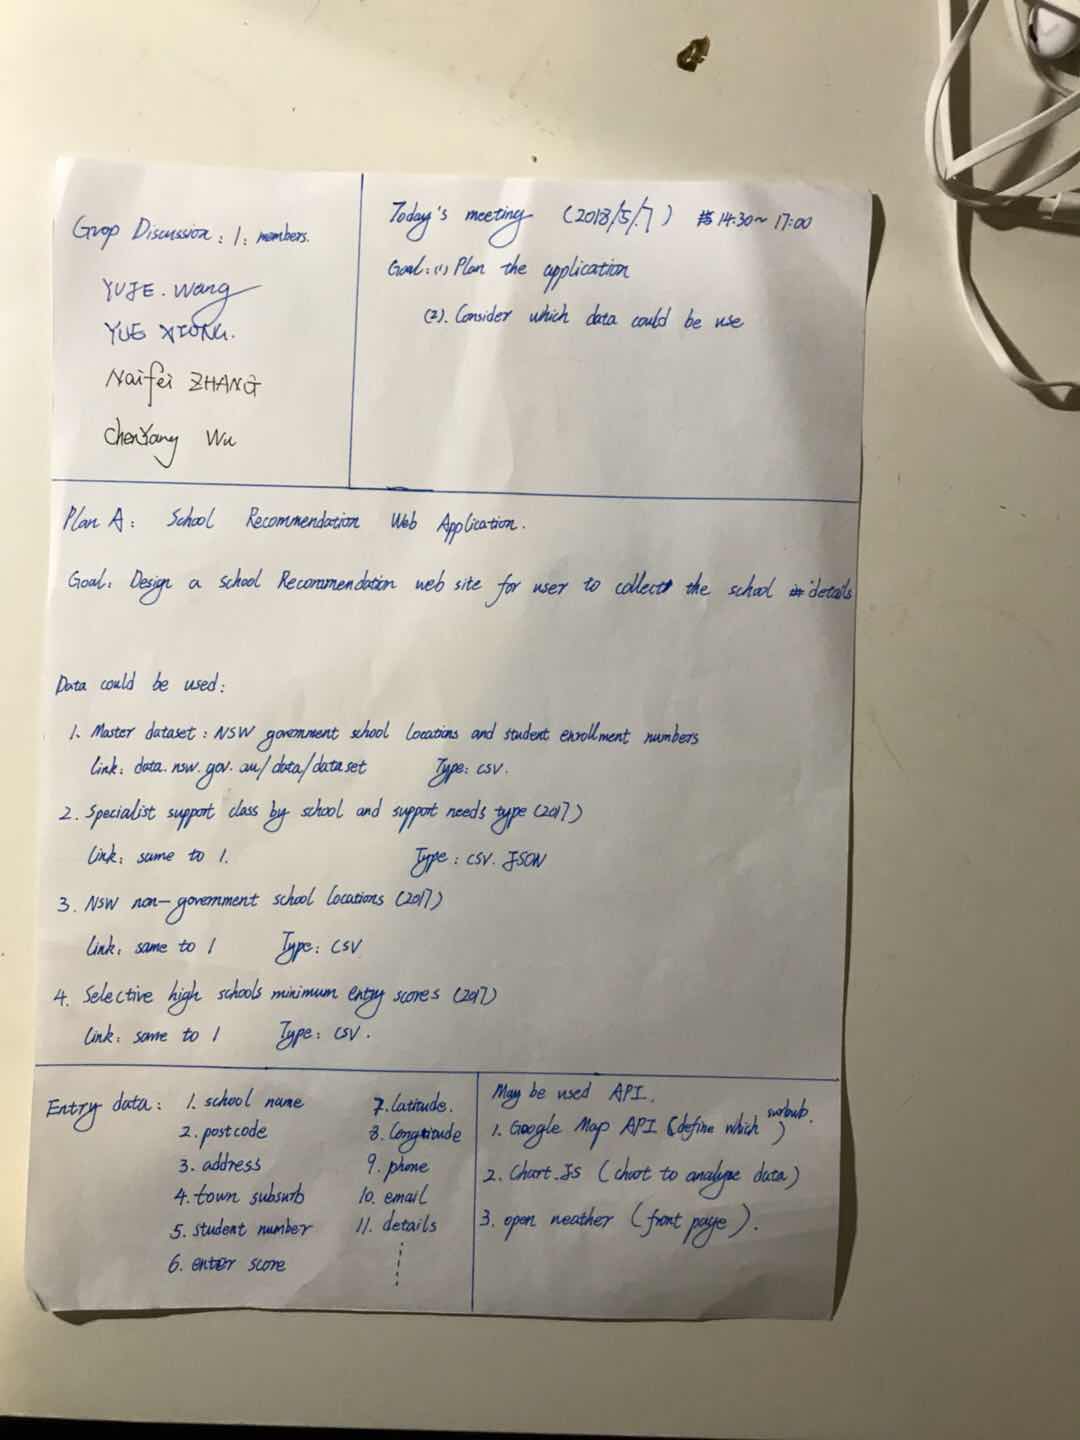 Grop Discussion: 1. members.
YUJE. Wang
YUE XIONG.
Naifei ZHANG
ChenYang Wu
Today's meeting (2018/5/7) 14:30~ 17:00
Goal: (1) Plan the application
(2). Consider which data could be use
Plan A: School Recommendation Web Application.
Goal: Design a school Recommendation web site for user to collect the school details
Data could be used:
1. Master dataset: NSW government school locations and student enrollment numbers
Link: data.nsw.gov.au/data/dataset Type: CSV.
2. Specialist support class by school and support needs type (2017)
Link: same to 1. Type: CSV. JSON
3. NSW non-government school locations (2017)
Link: same to 1 Type: CSV
4. Selective high schools minimum entry scores (2017)
Link: same to 1 Type: CSV.
Entry data: 1. school name
2. postcode
3. address
4. town subsurb
5. student number
6. enter score
7. Latitude.
8. Longtitude
9. phone
10. email
11. details
May be used API.
1. Google Map API (define which surbub.)
2. Chart.JS (chart to analyze data)
3. open neather (front page).